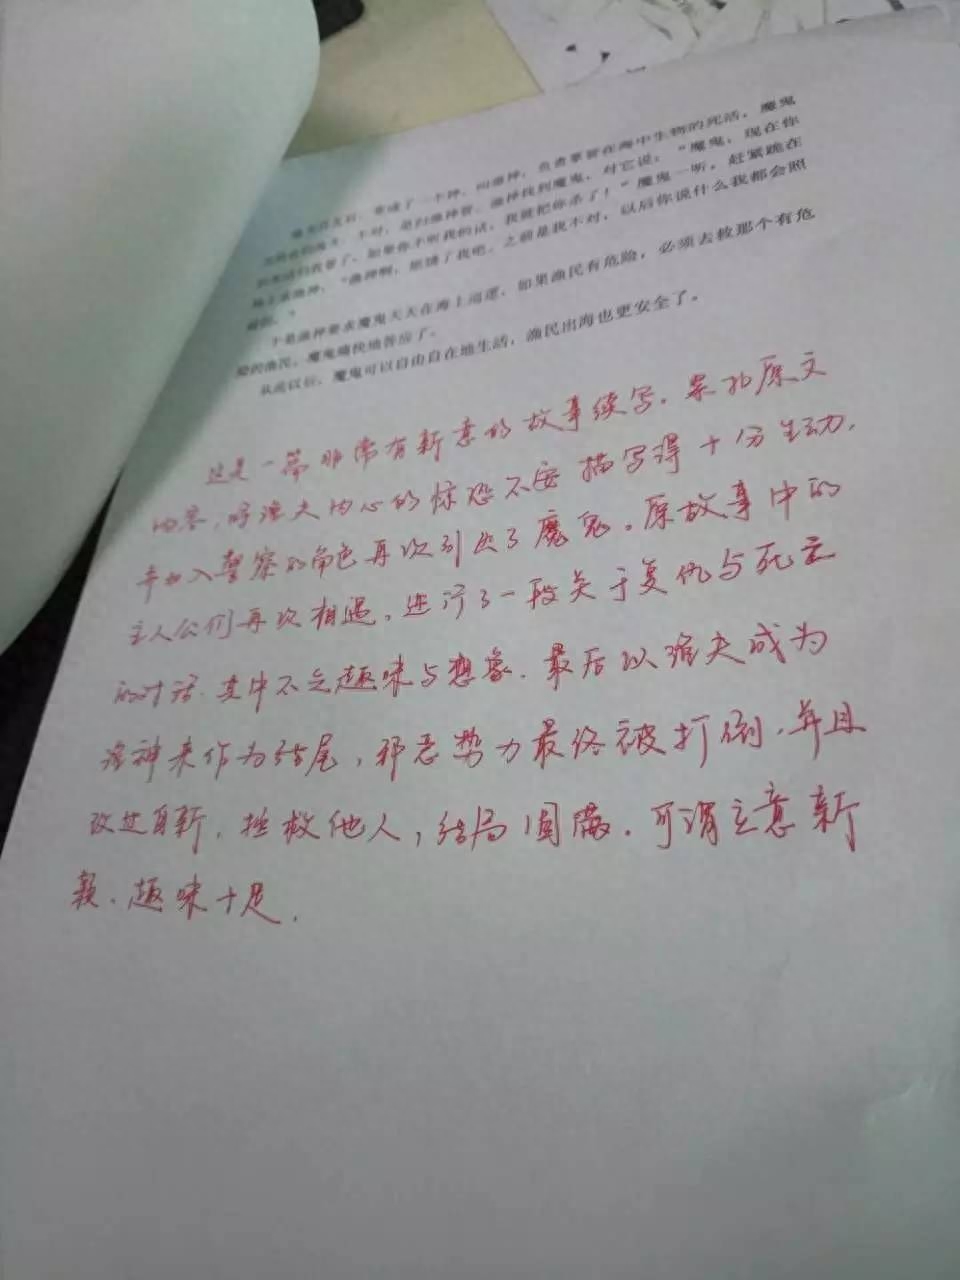 渔夫死去后，变成了一个神，叫渔神，负责掌管在海中生物的死活，魔鬼
对，是归渔神管。渔神找到魔鬼，对它说：“魔鬼，现在你
归我管了，如果你不听我的话，我就把你杀了！”魔鬼一听，赶紧跪在
地上求渔神：“渔神啊，您饶了我吧，之前是我不对，以后你说什么我都会照
做的。”
于是渔神要求魔鬼天天在海上巡逻，如果渔民有危险，必须去救那个有危
险的渔民，魔鬼痛快地答应了。
从此以后，魔鬼可以自由自在地生活，渔民出海也更安全了。
这是一篇非常有新意的故事续写．紧扣原文
内容，将渔夫内心的惊恐不安描写得十分生动，
并加入警察的角色再次引出了魔鬼。原故事中的
主人公们再次相遇，进行了一段关于复仇与死亡
的对话．其中不乏趣味与想象．最后以渔夫成为
渔神来作为结尾，邪恶势力最终被打倒，并且
改过自新，拯救他人，结局圆满．可谓立意新
颖、趣味十足．